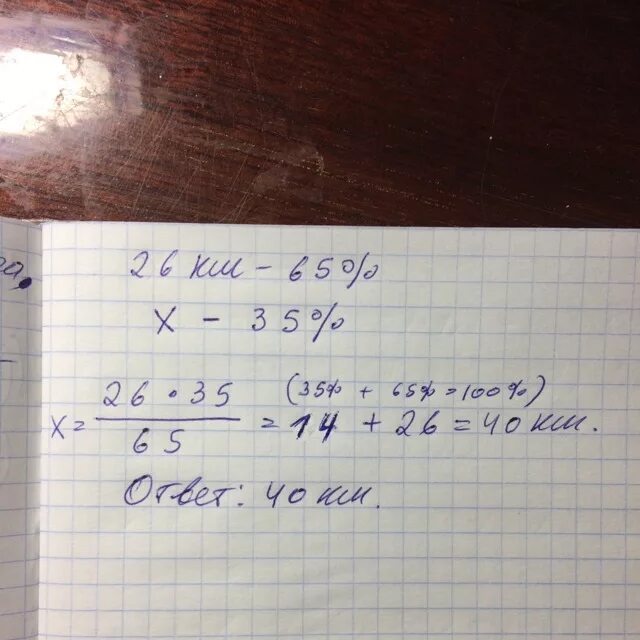 26 км – 65%
х – 35%
(35% + 65% = 100%)
х = 26 · 35 / 65 = 14 + 26 = 40 км.
Ответ: 40 км.